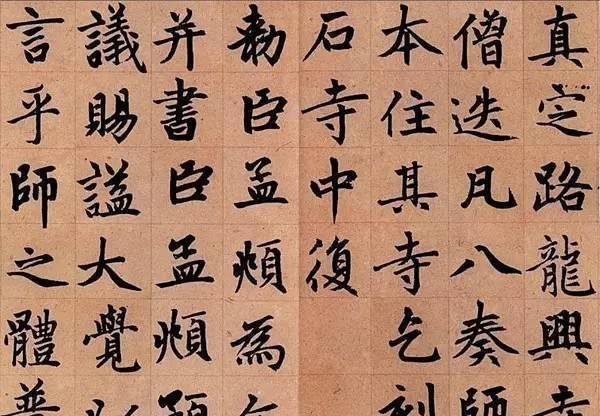 真定路龍興寺
僧迭凡八奏師
本住其寺乞刻
石寺中復
勑臣孟頫為
并書臣孟頫預
議賜謚大覺
言乎師之體普